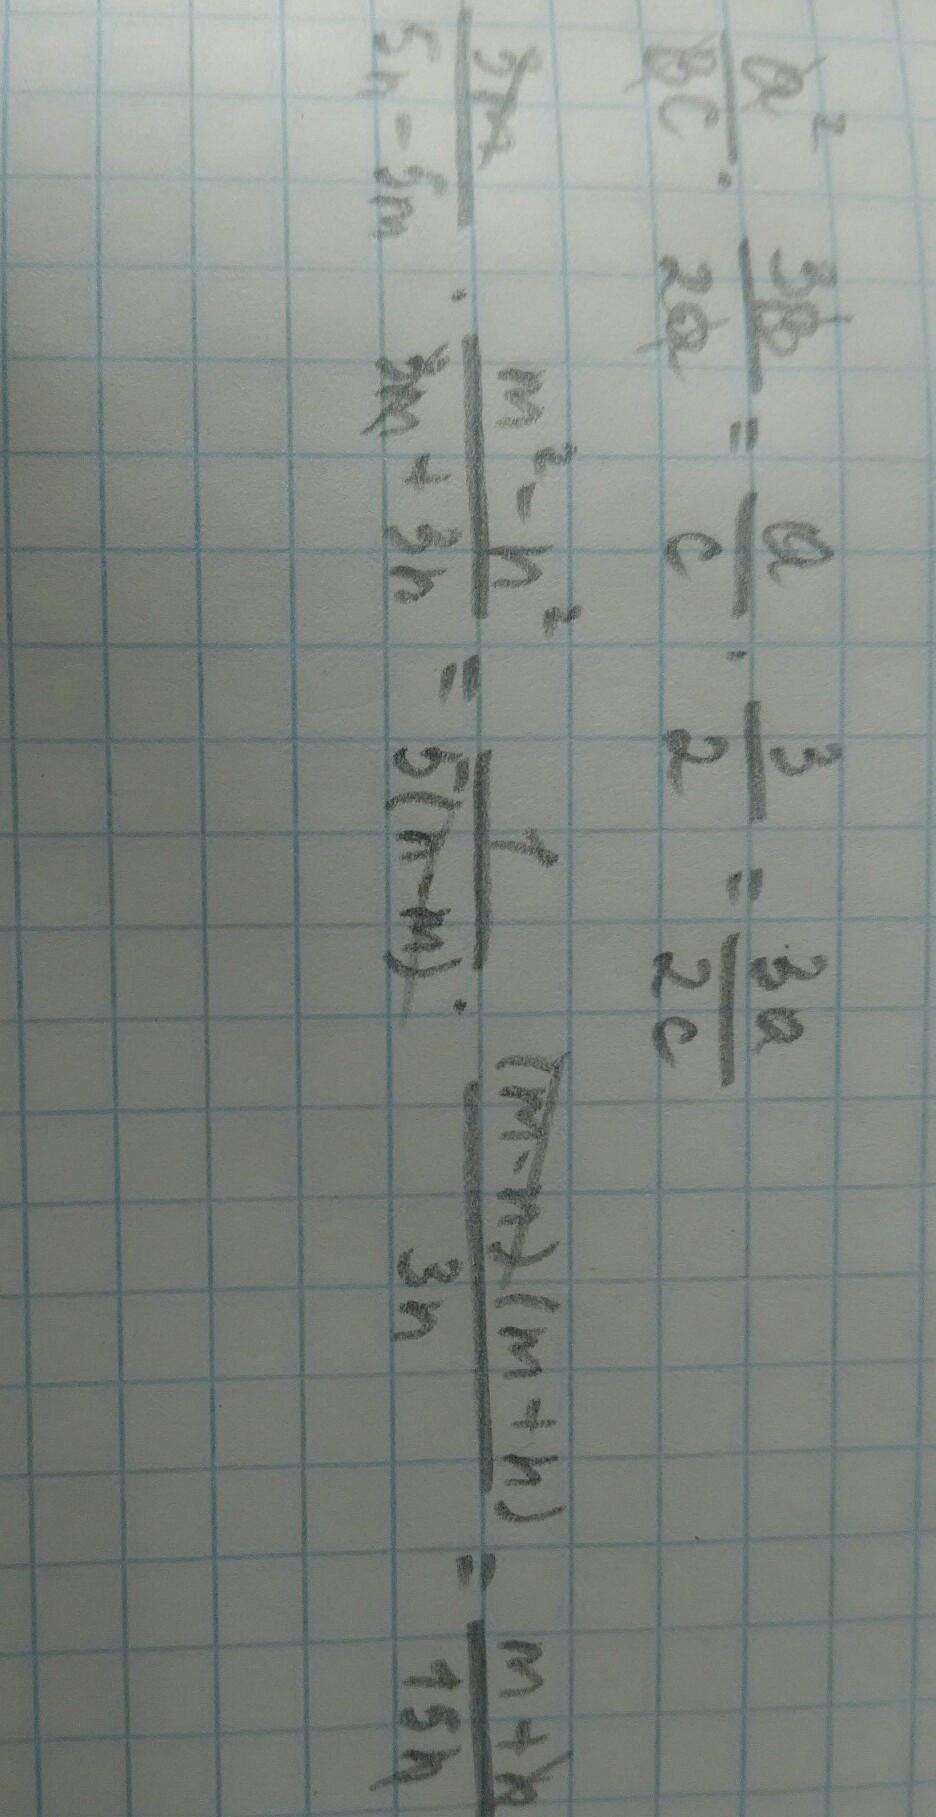 a²/bc · 3b/2a = a/c · 3/2 = 3a/2c
3m/5n - 5m · m² - n²/3m + 3n = 1/5(n-m) · (m-n)(m+n)/3n = m+n/15n